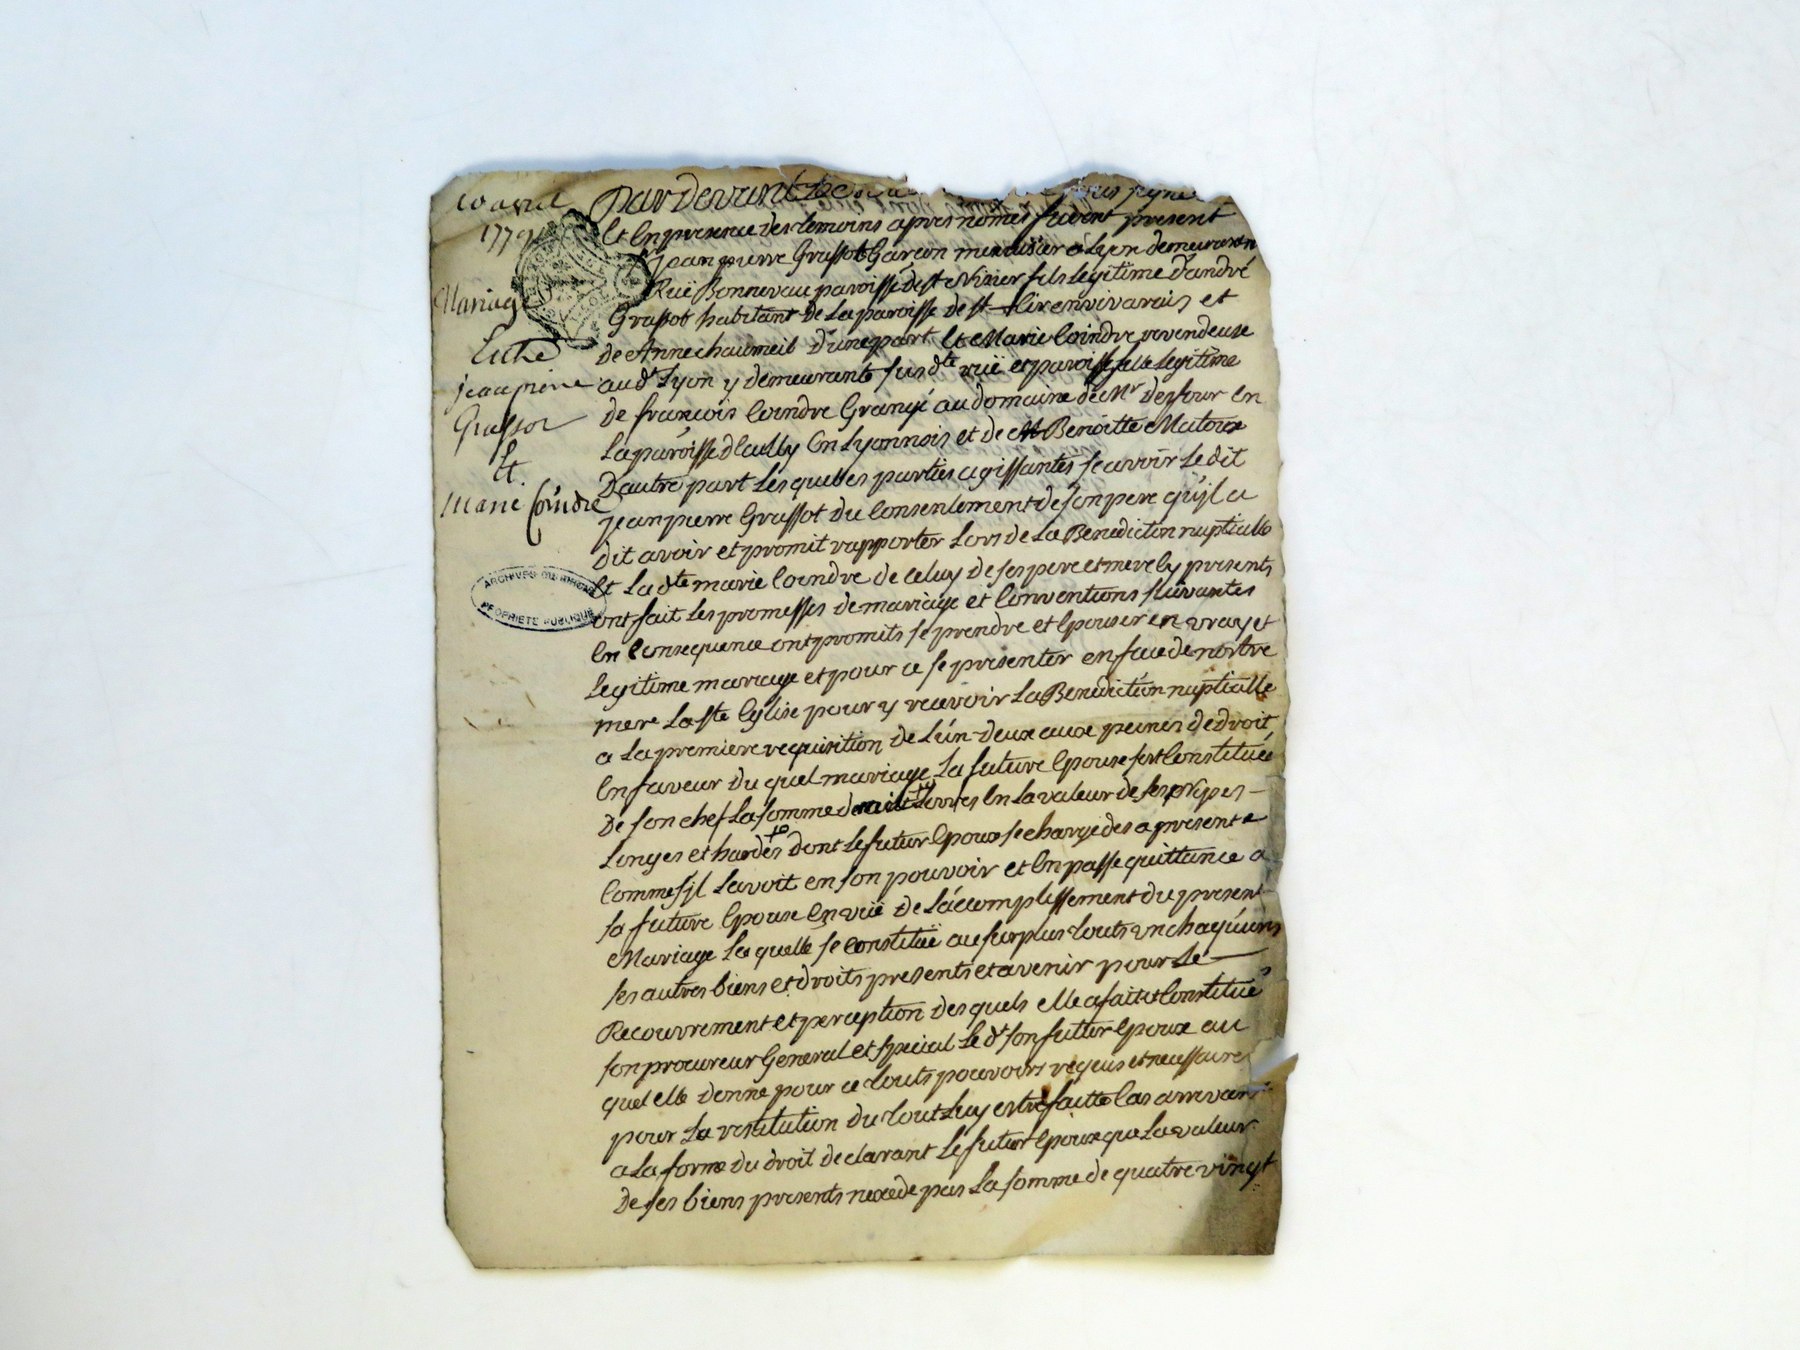 10 avril
1779
Mariage
Entre
jean pierre
Grassot
Et
Marie Coindre
ARCHIVES DU RHONE
PROPRIETE PUBLIQUE
Pardevant
Et En presence des temoins apres només furent present
jean pierre Grassot Garçon menuisier a Lyon demeurant
Ruë Bonneveau paroisse de st Nizier fils legitime d'andré
Grassot habitant de la paroisse de st Cir en vivarais et
de Anne chaumeil d'une part Et Marie Coindre revendeuse
aud.t Lyon y demeurante susd.te ruë et paroisse fille legitime
de françois Coindre Grangé au domaine de Mr dezfour En
la paroisse d'Cully En Lyonnois et de Benoitte Matoux
D'autre part Les quelles parties agissantes sçavoir Le dit
jean pierre Grassot du Consentement de son pere qu'jl a
dit avoir et promit rapporter Lors de La Benediction nuptialle
Et La d.te marie Coindre de Celuy de ses pere et mere Cy presents
ont fait Les promesses de mariage et Conventions suivantes
En Consequence ont promits se prendre et Epouser en vray et
Legitime mariage et pour ce se presenter en face de nostre
mere La ste Eglise pour y recevoir La Benediction nuptialle
a La premiere requisition de L'un deux aux peines de droit
En faveur du quel mariage La future Epouse sest Constituée
De son chef La somme de Livres En La valeur de ses nipes
Linges et hardes dont Le futur Epoux se charge des a present
Comme s'jl Lavoit en son pouvoir et En passe quittance a
sa future Epouse En vuë de L'acomplissement du present
Mariage La quelle se constituë au surplus touts un chaquuns
ses autres biens et droits presents et avenir pour Le
Recouvrement et perception des quels elle a fait et Constitué
son procureur General et special Le d.t son futur Epoux au
quel elle donne pour ce touts pouvoirs requis et necessaires
pour La restitution du tout Luy estre faitte Cas arrivant
a La forme du droit declarant Le futur Epoux que La valeur
De ses biens presents nexede pas La somme de quatre vingt